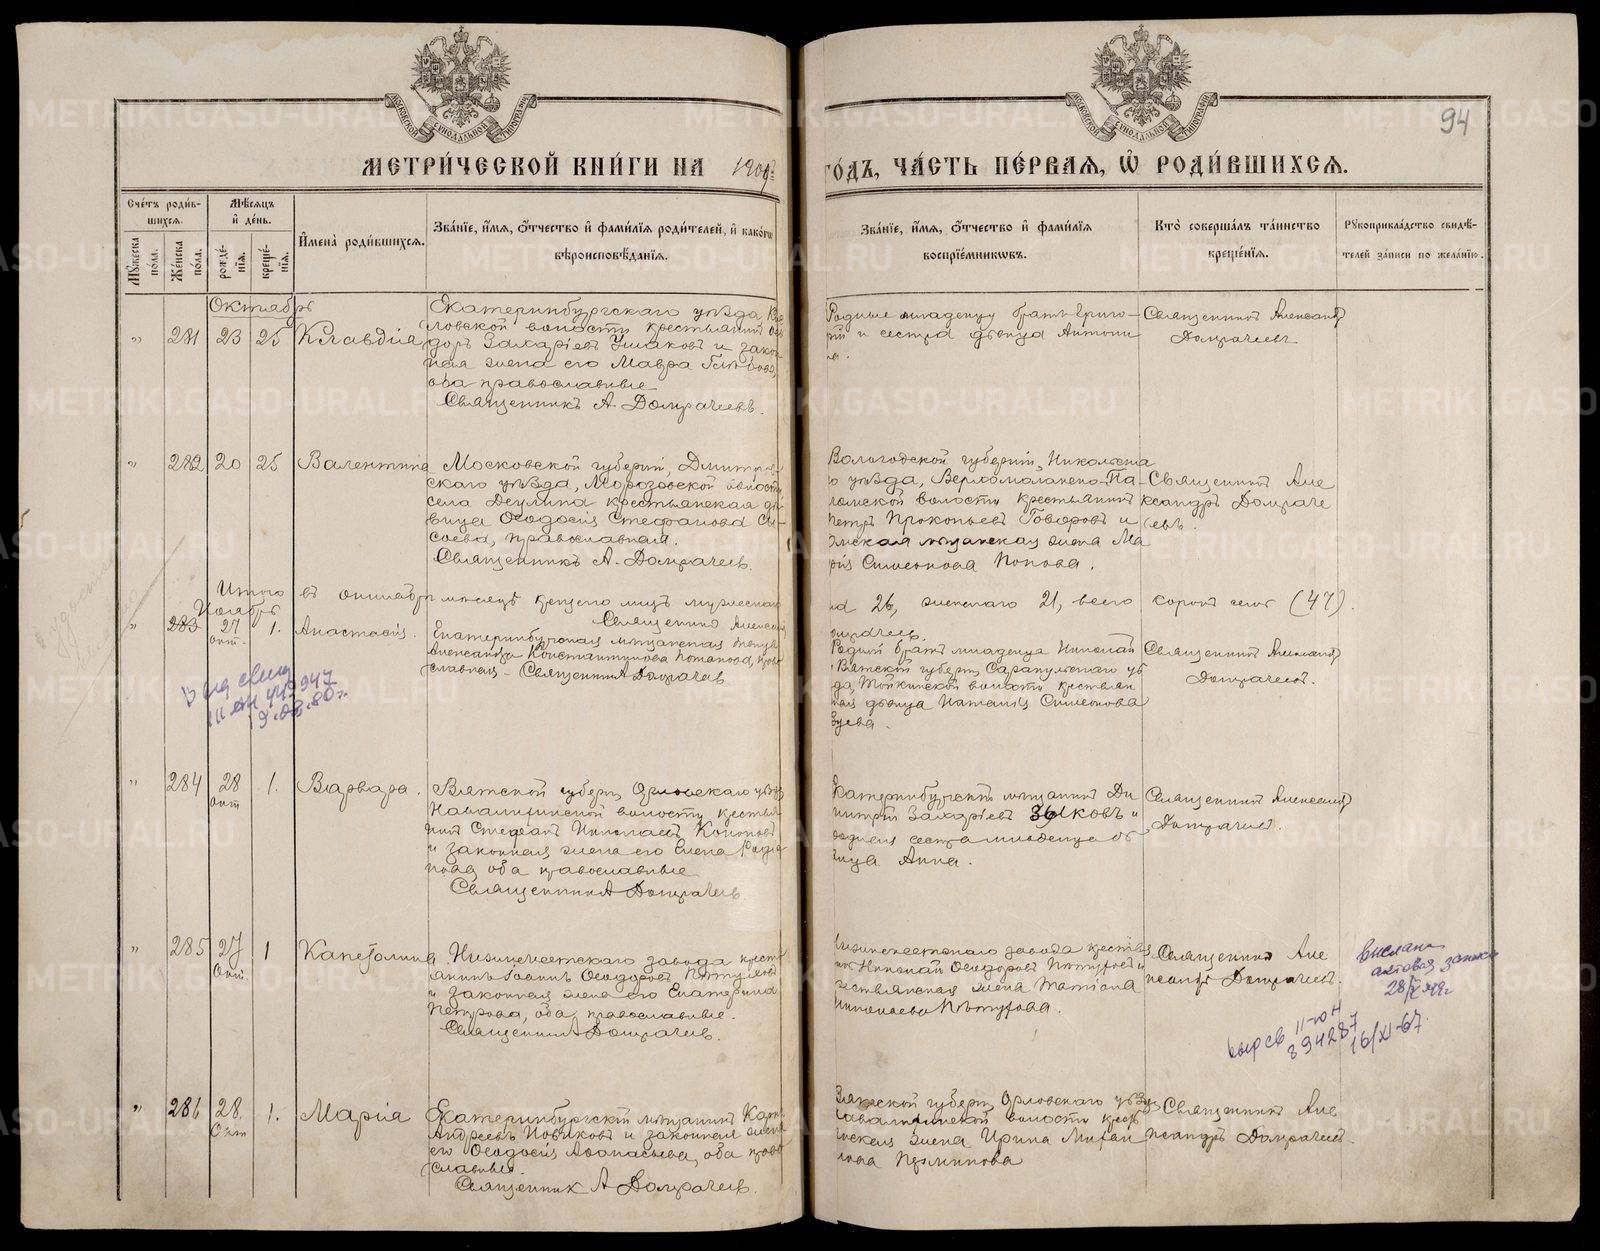 94
МЕТРИ́ЧЕСКОЙ КНИ́ГИ НА 1909
ГО́ДЪ, ЧА́СТЬ ПЕ́РВАЯ, Ѡ҆ РОДИ́ВШИХСЯ.
Сче́тъ роди́в-
шихся.
Мꙋ́жеска по́ла.
Же́нска по́ла.
Мѣ́сяцъ
и҆ де́нь.
рожде́-
нїя.
креще́-
нїя.
И҆мена̀ роди́вшихся.
Зва́нїе, и҆́мя, ѻ҆́тчество и҆ фами́лїя роди́телей, и҆ како́гѡ
вѣроисповѣ́данїя.
Зва́нїе, и҆́мя, ѻ҆́тчество и҆ фами́лїя
воспрїе́мниковъ.
Кто̀ соверша́лъ та́инство
креще́нїя.
Рꙋкоприкла́дство свидѣ́-
телей за́писи по жела́нїю.
Октябрь
" 281 23 25 Клавдія
Екатеринбургскаго уѣзда
ловской волости крестьянинъ
доръ Захаріевъ Ушаковъ и закон-
ная жена его Мавра Глѣбова,
оба православные
Священникъ А. Домрачевъ.
Родные младенцу братъ Григо-
рій и сестра дѣвица Антони
на.
Священникъ Александръ
Домрачевъ
" 282 20 25 Валентина
Московской губерніи, Дмитров-
скаго уѣзда, Морозовской волости
села Деулина крестьянская дѣ-
вица Ѳеодосія Стефанова Сы-
соева, православная.
Священникъ А. Домрачевъ.
Вологодской губерніи, Никольска
го уѣзда, Верхомоломско-Па-
ломской волости крестьянинъ
Петръ Прокопьевъ Говоровъ и
Омская мѣщанская жена Ма
рія Симеонова Попова.
Священникъ Але
ксандръ Домраче
евъ.
Итого въ октябрѣ мѣсяцѣ крещено лицъ мужескаго
пола 26, женскаго 21, всего сорокъ семь (47).
Священникъ Александръ
Домрачевъ.
Ноябрь
" 283 27 окт. 1. Анастасія.
Екатеринбургская мѣщанская дѣвица
Александра Константинова Потапова, право
славная – Священникъ А Домрачевъ
Родной братъ младенца Николай
и Вятской губерніи Сарапульскаго уѣ
зда, Воткинской волости крестьян
ская дѣвица Наталія Симеонова
Зуева.
Священникъ Александръ
Домрачевъ.
Выд свид
9.08.80г.
" 284 28 окт 1. Варвара.
Вятской губерніи Орловскаго уѣзда
волости крестья
нинъ Стефанъ Николаевъ Кононовъ
и законная жена его Елена Родіо
нова, оба православные
Священникъ А Домрачевъ
Екатеринбургскій мѣщанинъ Ди
митрій Захаріевъ Зыковъ и
родная сестра младенца дѣ
вица Анна.
Священникъ Александръ
Домрачевъ.
" 285 27 Окт. 1 Капетолина
Нижнеисетскаго завода кресть
янинъ Іоаннъ Ѳеодоровъ Пѣтуховъ
и законная жена его Екатерина
Петрова, оба православные.
Священникъ А Домрачевъ.
Нижнеисетскаго завода крестья
нинъ Николай Ѳеодоровъ Пѣтуховъ и
крестьянская жена Татіана
Николаева Пѣтухова.
Священникъ Але
ксандръ Домрачевъ.
Выслана
актовая запись
выр св II-юН
894287
16/XI-67
" 286 28. Окт 1. Марія
Екатеринбургскій мѣщанинъ Карпъ
Андреевъ Новиковъ и законная жена
его Ѳеодосія Аѳанасьева, оба право
славные.
Священникъ А Домрачевъ.
Вятской губерніи, Орловскаго уѣзда
волости крестьян
ская жена Ирина Михаи
лова Перминова
Священникъ Але
ксандръ Домрачевъ.
METRIKI.GASO-URAL.RU